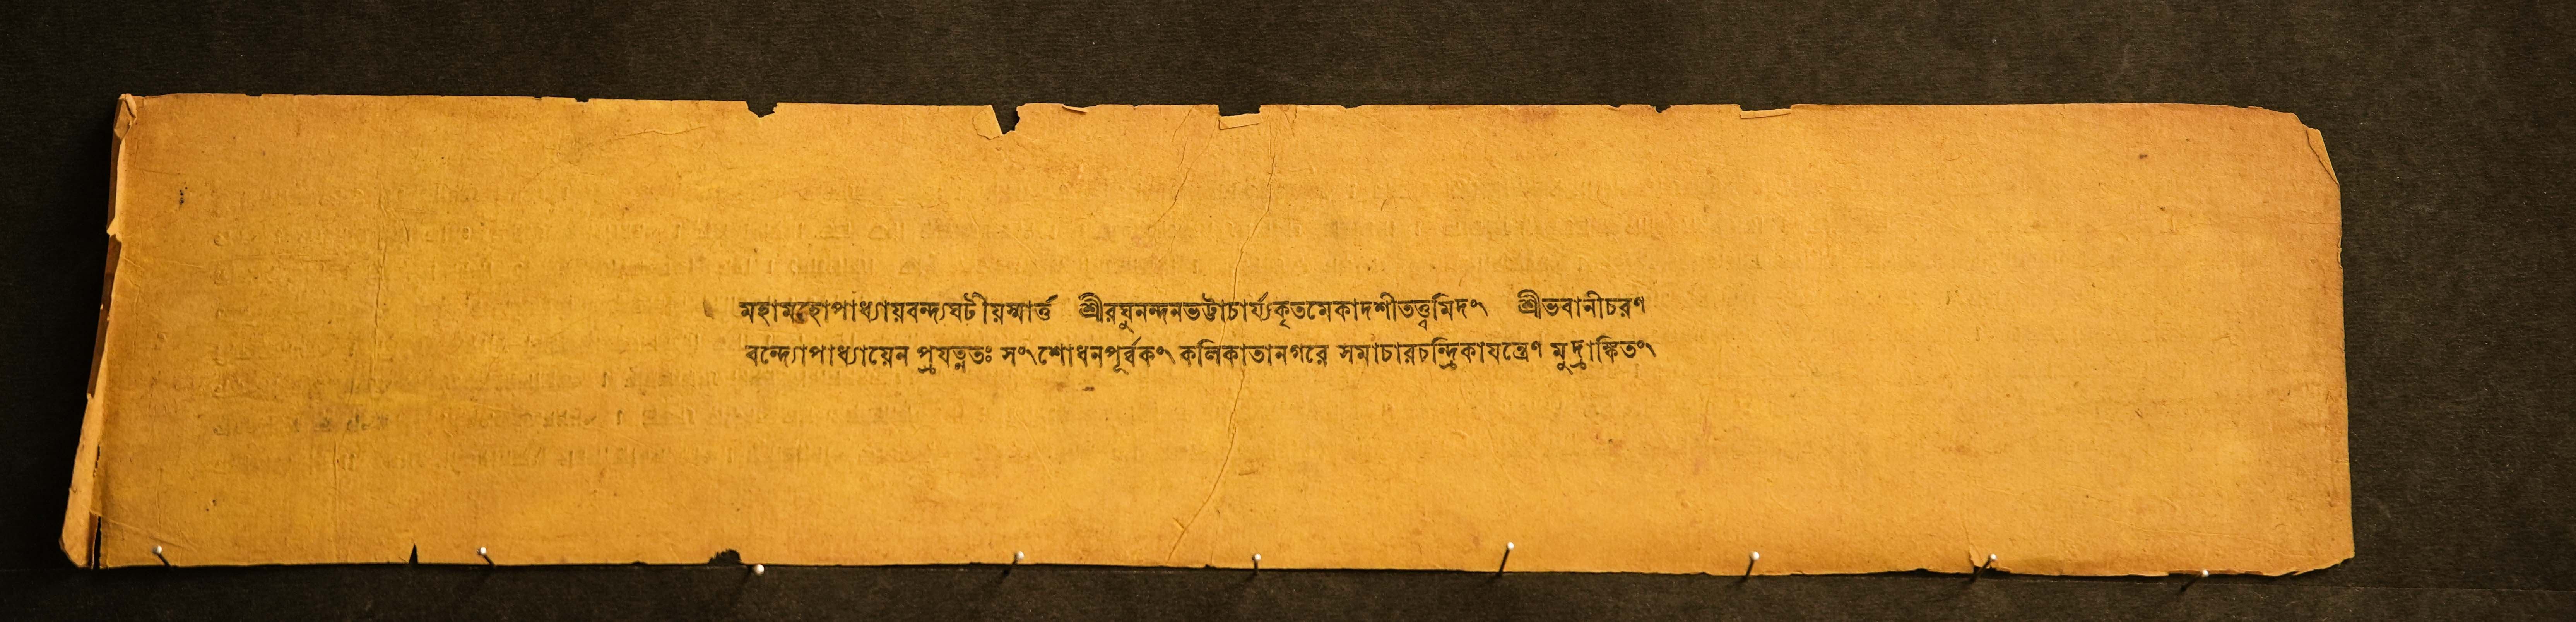 মহামহোপাধ্যায়বন্দ্যঘটীয়স্মার্ত্ত শ্রীরঘুনন্দনভট্টাচার্য্যকৃতমেকাদশীতত্ত্বমিদং শ্রীভবানীচরণ
বন্দ্যোপাধ্যায়েন প্রযত্নতঃ সংশোধনপূর্ব্বকং কলিকাতানগরে সমাচারচন্দ্রিকাযন্ত্রেণ মুদ্রাঙ্কিতং